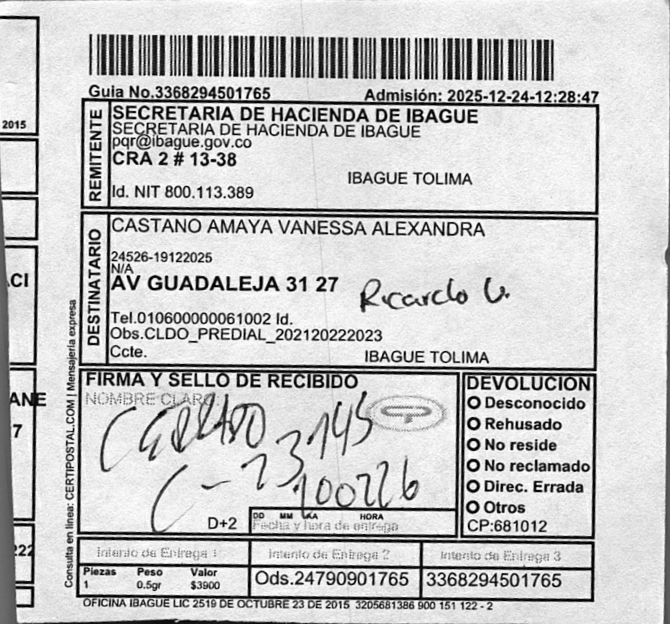 2015
Guia No.3368294501765 Admisión: 2025-12-24-12:28:47
REMITENTE
SECRETARIA DE HACIENDA DE IBAGUE
SECRETARIA DE HACIENDA DE IBAGUE
pqr@ibague.gov.co
CRA 2 # 13-38
IBAGUE TOLIMA
Id. NIT 800.113.389
DESTINATARIO
CASTANO AMAYA VANESSA ALEXANDRA
24526-19122025
N/A
AV GUADALEJA 31 27
Ricardo U.
Tel.010600000061002 Id.
Obs.CLDO_PREDIAL_202120222023
Ccte.
IBAGUE TOLIMA
ACI
ANE
7
222
Consulta en linea: CERTIPOSTAL.COM | Mensajeria expresa
FIRMA Y SELLO DE RECIBIDO
NOMBRE CLARO:
CERRADO
C-23145
100226
D+2
DD MM AA HORA
Fecha y hora de entrega
DEVOLUCION
Desconocido
Rehusado
No reside
No reclamado
Direc. Errada
Otros
CP:681012
Intento de Entrega 1 Intento de Entrega 2 Intento de Entrega 3
Piezas Peso Valor
1 0.5gr $3900
Ods.24790901765
3368294501765
OFICINA IBAGUE LIC 2519 DE OCTUBRE 23 DE 2015 3205681386 900 151 122 - 2